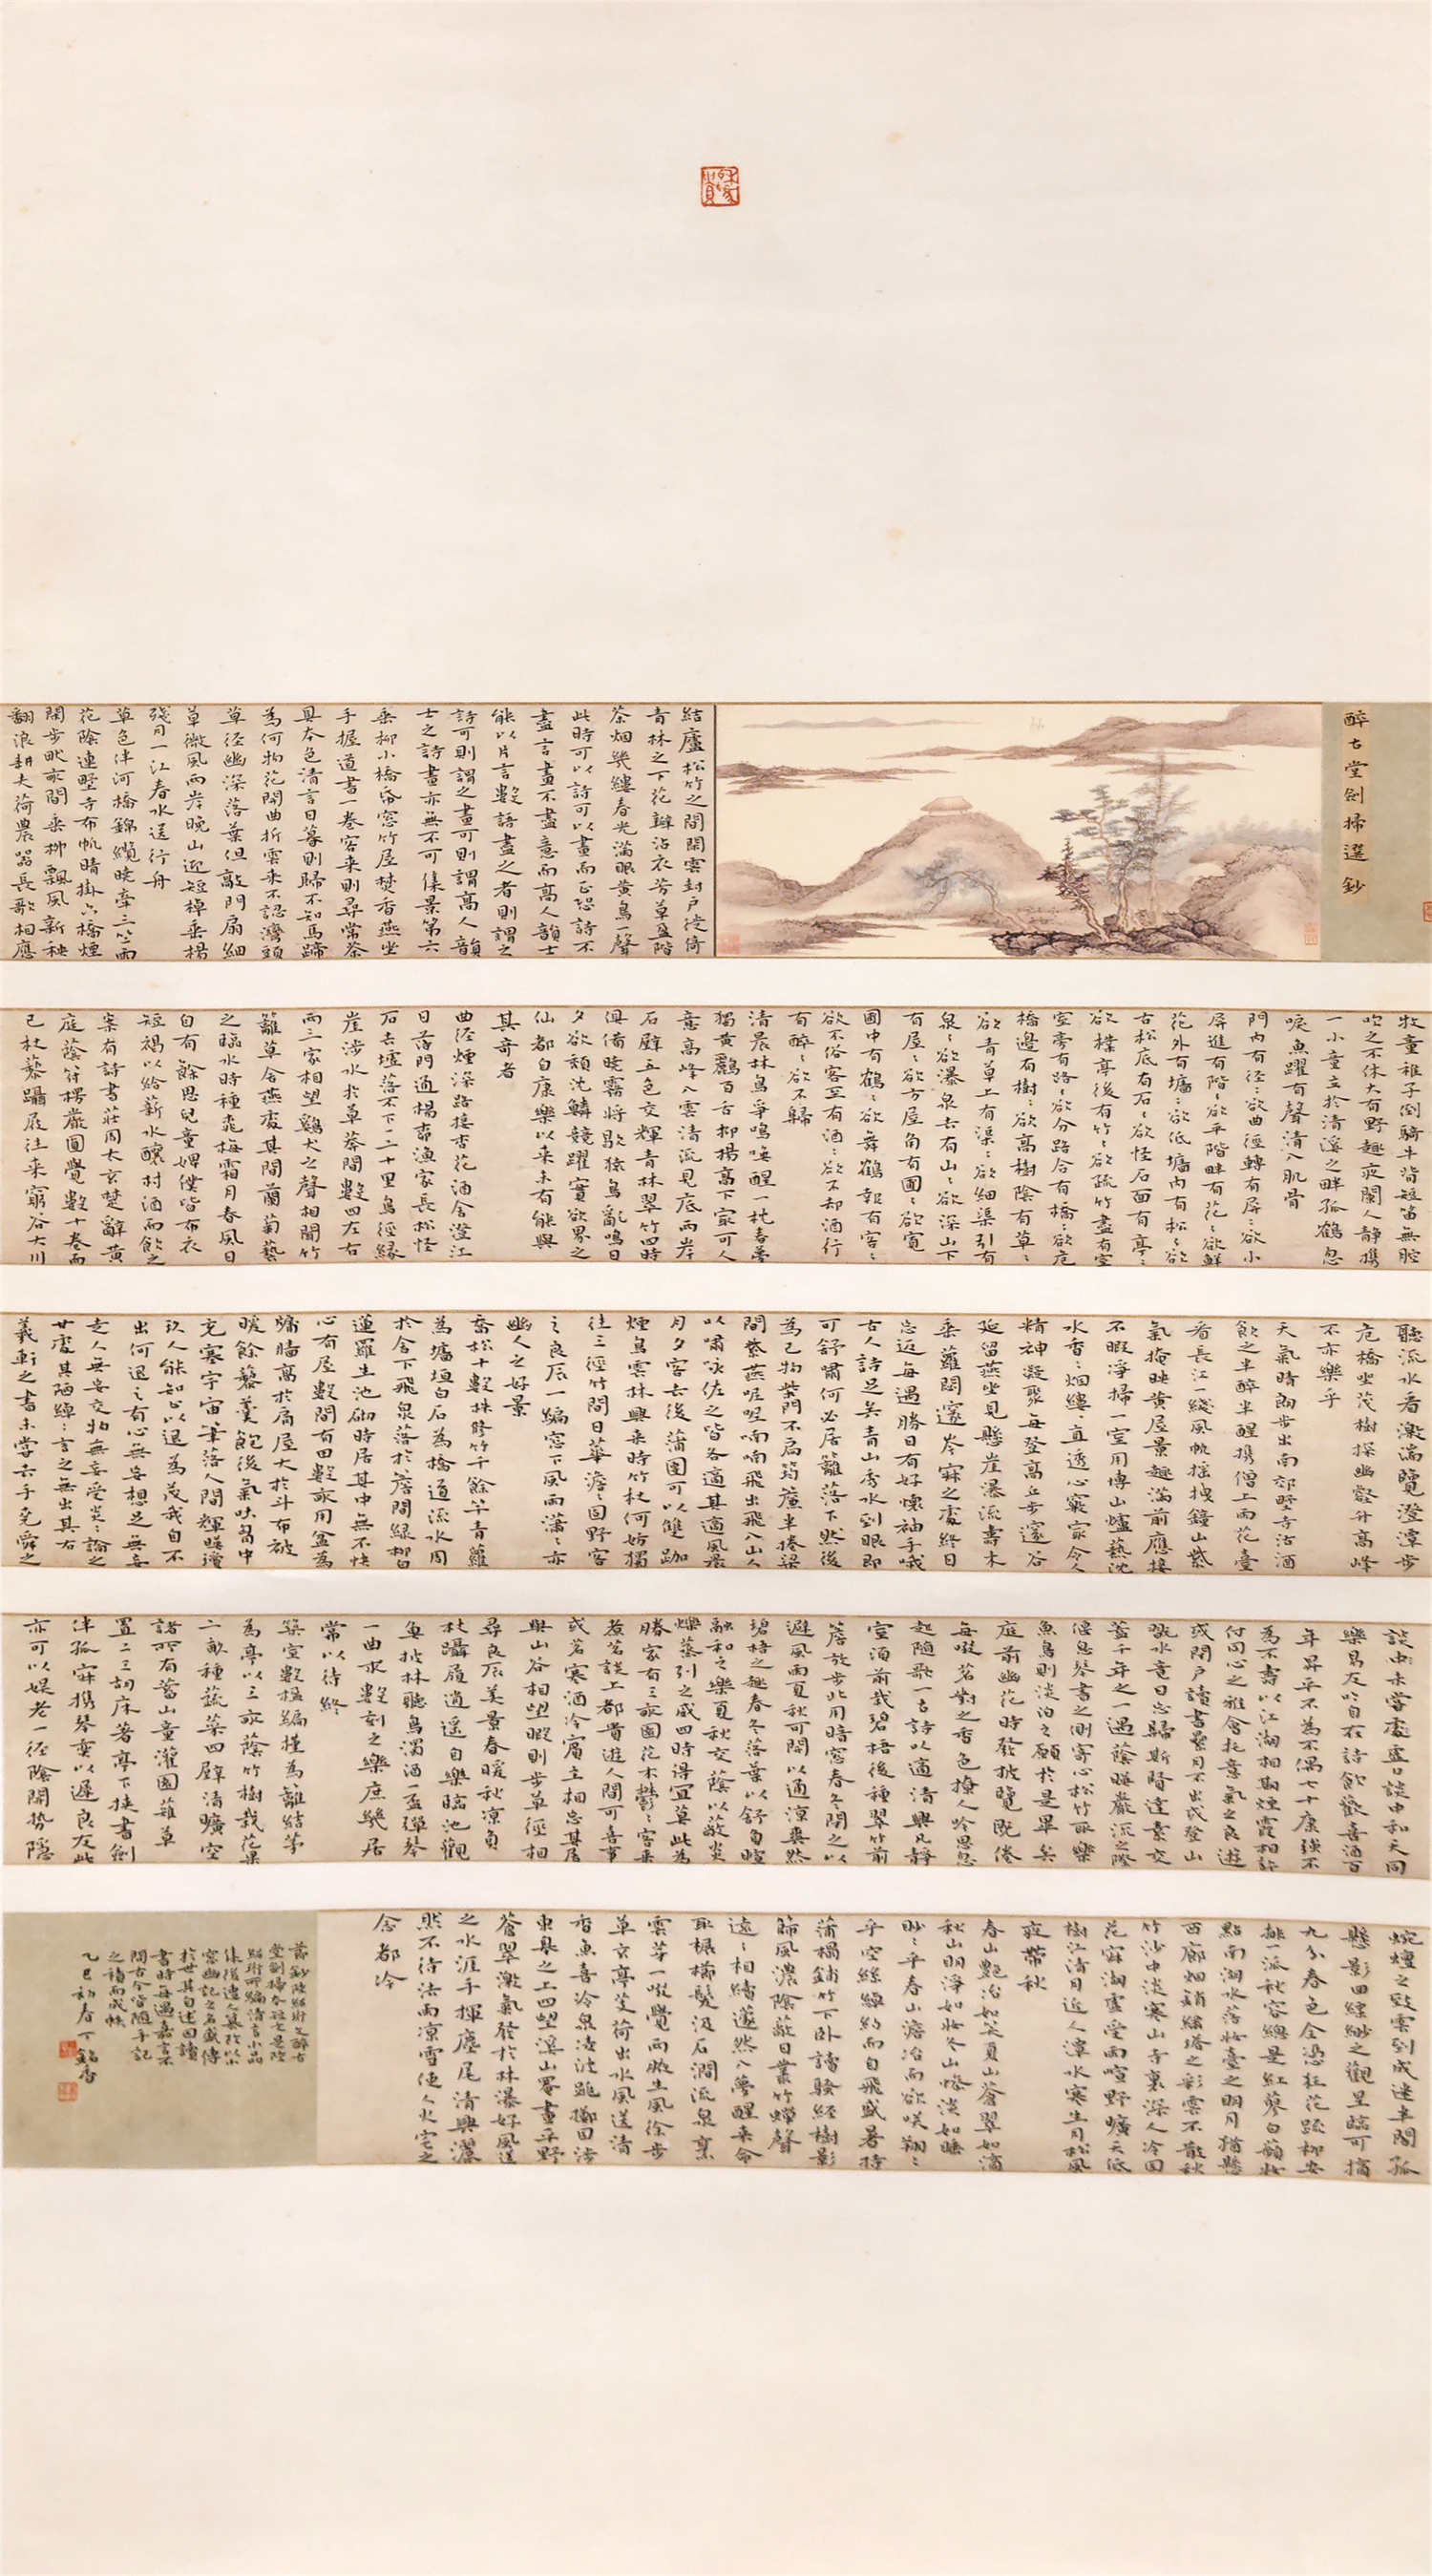 醉古堂劍掃選鈔
結廬松竹之間閒雲封戶徙倚
青林之下花瓣沾衣芳草盈階
茶烟幾縷春光滿眼黃鳥一聲
此時可以詩可以畫而正恐詩不
盡言畫不盡意而高人韻士
能以片言數語盡之者則謂之
詩可則謂之畫可則謂高人韻
士之詩畫亦無不可集景第六
垂柳小橋帋窓竹屋焚香燕坐
手握道書一卷客来則尋常茶
具本色清言日暮則歸不知馬蹄
為何物花開曲折雲来不認灣頭
草徑幽深落葉但敲門扇細
草微風兩岸晚山迎短棹垂楊
殘月一江春水送行舟
草色伴河橋錦纜曉牽三竺雨
花陰連野寺布帆晴掛六橋煙
閑步畎畝間垂柳飄風新秧
翻浪耕夫荷農器長歌相應
牧童稚子倒騎牛背短笛無腔
吹之不休大有野趣夜闌人靜携
一小童立於清溪之畔孤鶴忽
唳魚躍有聲清入肌骨
門內有徑〻欲曲徑轉有屏〻欲小
屏進有階〻欲平階畔有花〻欲鮮
花外有墻〻欲低墻內有松〻欲
古松底有石〻欲怪石面有亭〻
欲樸亭後有竹〻欲疏竹盡有室
室旁有路〻欲分路合有橋〻欲危
橋邊有樹〻欲高樹陰有草〻
欲青草上有渠〻欲細渠引有
泉〻欲瀑泉去有山〻欲深山下
有屋〻欲方屋角有圃〻欲寬
圃中有鶴〻欲舞鶴報有客〻
欲不俗客至有酒〻欲不却酒行
有醉〻欲不歸
清晨林鳥爭鳴喚醒一枕春夢
獨黃鸝百舌抑揚高下寂可人
意高峰入雲清流見底兩岸
石壁五色交輝青林翠竹四時
俱備曉霧將歇猿鳥亂鳴日
夕欲頹沈鱗競躍實欲界之
仙都自康樂以来未有能與
其奇者
曲徑煙深路接杏花酒舍澄江
日落門通楊柳漁家長松怪
石去墟落不下一二十里鳥徑緣
崖涉水於草莽間數四左右
兩三家相望鷄犬之聲相聞竹
籬草舍燕處其間蘭菊藝
之臨水時種桃梅霜月春風日
自有餘思兒童婢僕皆布衣
短褐以給薪水釀村酒而飲之
案有詩書莊周太玄楚辭黃
庭蔭符楞嚴圓覺數十卷而
已杖藜躡屐往来窮谷大川
聽流水看激湍覽澄潭步
危橋坐茂樹探幽壑升高峰
不亦樂乎
天氣晴朗步出南郊野寺沽酒
飲之半醉半醒携僧上雨花臺
看長江一綫風帆搖拽鐘山紫
氣掩映黃屋景趣滿前應接
不暇淨掃一室用博山爐爇沈
水香〻烟縷〻直透心竅寂令人
精神凝聚每登高丘步邃谷
延留燕坐見懸崖瀑流壽木
垂蘿閟邃岑寂之處終日
忘返每遇勝日有好懷袖手哦
古人詩足矣青山秀水到眼即
可舒嘯何必居籬落下然後
為己物柴門不扃筠簾半捲梁
間紫燕呢呢喃喃飛出飛入山人
以嘯咏佐之皆各適其適風晨
月夕客去後蒲團可以雙跏
煙鳥雲林興来時竹杖何妨獨
往三徑竹間日華澹〻固野客
之良辰一編窓下風雨瀟〻亦
幽人之好景
喬松十數株修竹千餘竿青蘿
為墻垣白石為橋道流水周
於舍下飛泉落於簷間綠柳白
蓮羅生池砌時居其中無不快
心有屋數間有田數畝用盆為
牖墻高於肩屋大於斗布被
暖餘藜羹飽後氣吐胸中
充塞宇宙筆落人間輝暎瓊
玖人能知止以退為茂我自不
出何退之有心無妄想足無妄
走人無妄交物無妄受炎〻論之
甘處其陋綽〻言之無出其右
羲軒之書未嘗去手堯舜之
談中未嘗虛口談中和天同
樂易友吟自在詩飲歡喜酒百
年昇平不為不偶七十康強不
為不壽以江湖相期煙霞相許
付同心之雅會托意氣之良遊
或閉戶讀書累月不出或登山
翫水竟日忘歸斯賢達素交
蓋千年之一遇蔭映巖流之際
偃息琴書之側寄心松竹取樂
魚鳥則淡泊之願於是畢矣
庭前幽花時發披覽既倦
每啜茗對之香色撩人吟思忽
起隨歌一古詩以適清興凡靜
室須前栽碧梧後種翠竹前
簷放步北用暗窓春冬閉之以
避風雨夏秋可開以通涼爽然
碧梧之趣春冬落葉以舒負暄
融和之樂夏秋交蔭以蔽炎
爍蒸烈之威四時得宜莫此為
勝家有三畝園花木鬱〻客来
煮茗談上都貴遊人間可喜事
或茗寒酒冷賓主相忘其居
與山谷相望暇則步草徑相
尋良辰美景春暖秋凉負
杖躡履逍遙自樂臨池觀
魚披林聽鳥濁酒一盃彈琴
一曲求數刻之樂庶幾居
常以待終
築室數楹編槿為籬結茅
為亭以三畝蔭竹樹栽花果
二畝種蔬菜四壁清曠空
諸所有蓄山童灌園薙草
置二三胡床著亭下挾書劍
伴孤寂携琴奕以遲良友此
亦可以娛老一徑陰開勢隱
蜿蟺之致雲到成迷半閣孤
懸影回縹緲之觀星臨可摘
九分春色全憑狂花疏柳安
排一派秋容總是紅蓼白蘋妝
點南湖水落妝臺之明月猶懸
西廊烟銷繡塔之彩雲不散秋
竹沙中淡寒山寺裏深人冷因
花寂湖虛受雨喧野曠天低
樹江清月近人潭水寒生月松風
夜帶秋
春山艷冶如笑夏山蒼翠如滴
秋山明淨如妝冬山慘淡如睡
眇〻乎春山澹冶而欲咲翔〻
乎空絲綽約而自飛盛暑持
蒲榻鋪竹下卧讀騷經樹影
篩風濃陰蔽日叢竹蟬聲
遠〻相續蘧然入夢醒来命
取榐櫛髮汲石澗流泉烹
雲芽一啜覺兩腋生風徐步
草玄亭芰荷出水風送清
香魚喜冷泉凌波跳擲因涉
東皋之上四望溪山罨畫平野
蒼翠激氣發於林瀑好風送
之水涯手揮麈尾清興灑
然不待法雨凉雪使人火宅之
念都冷